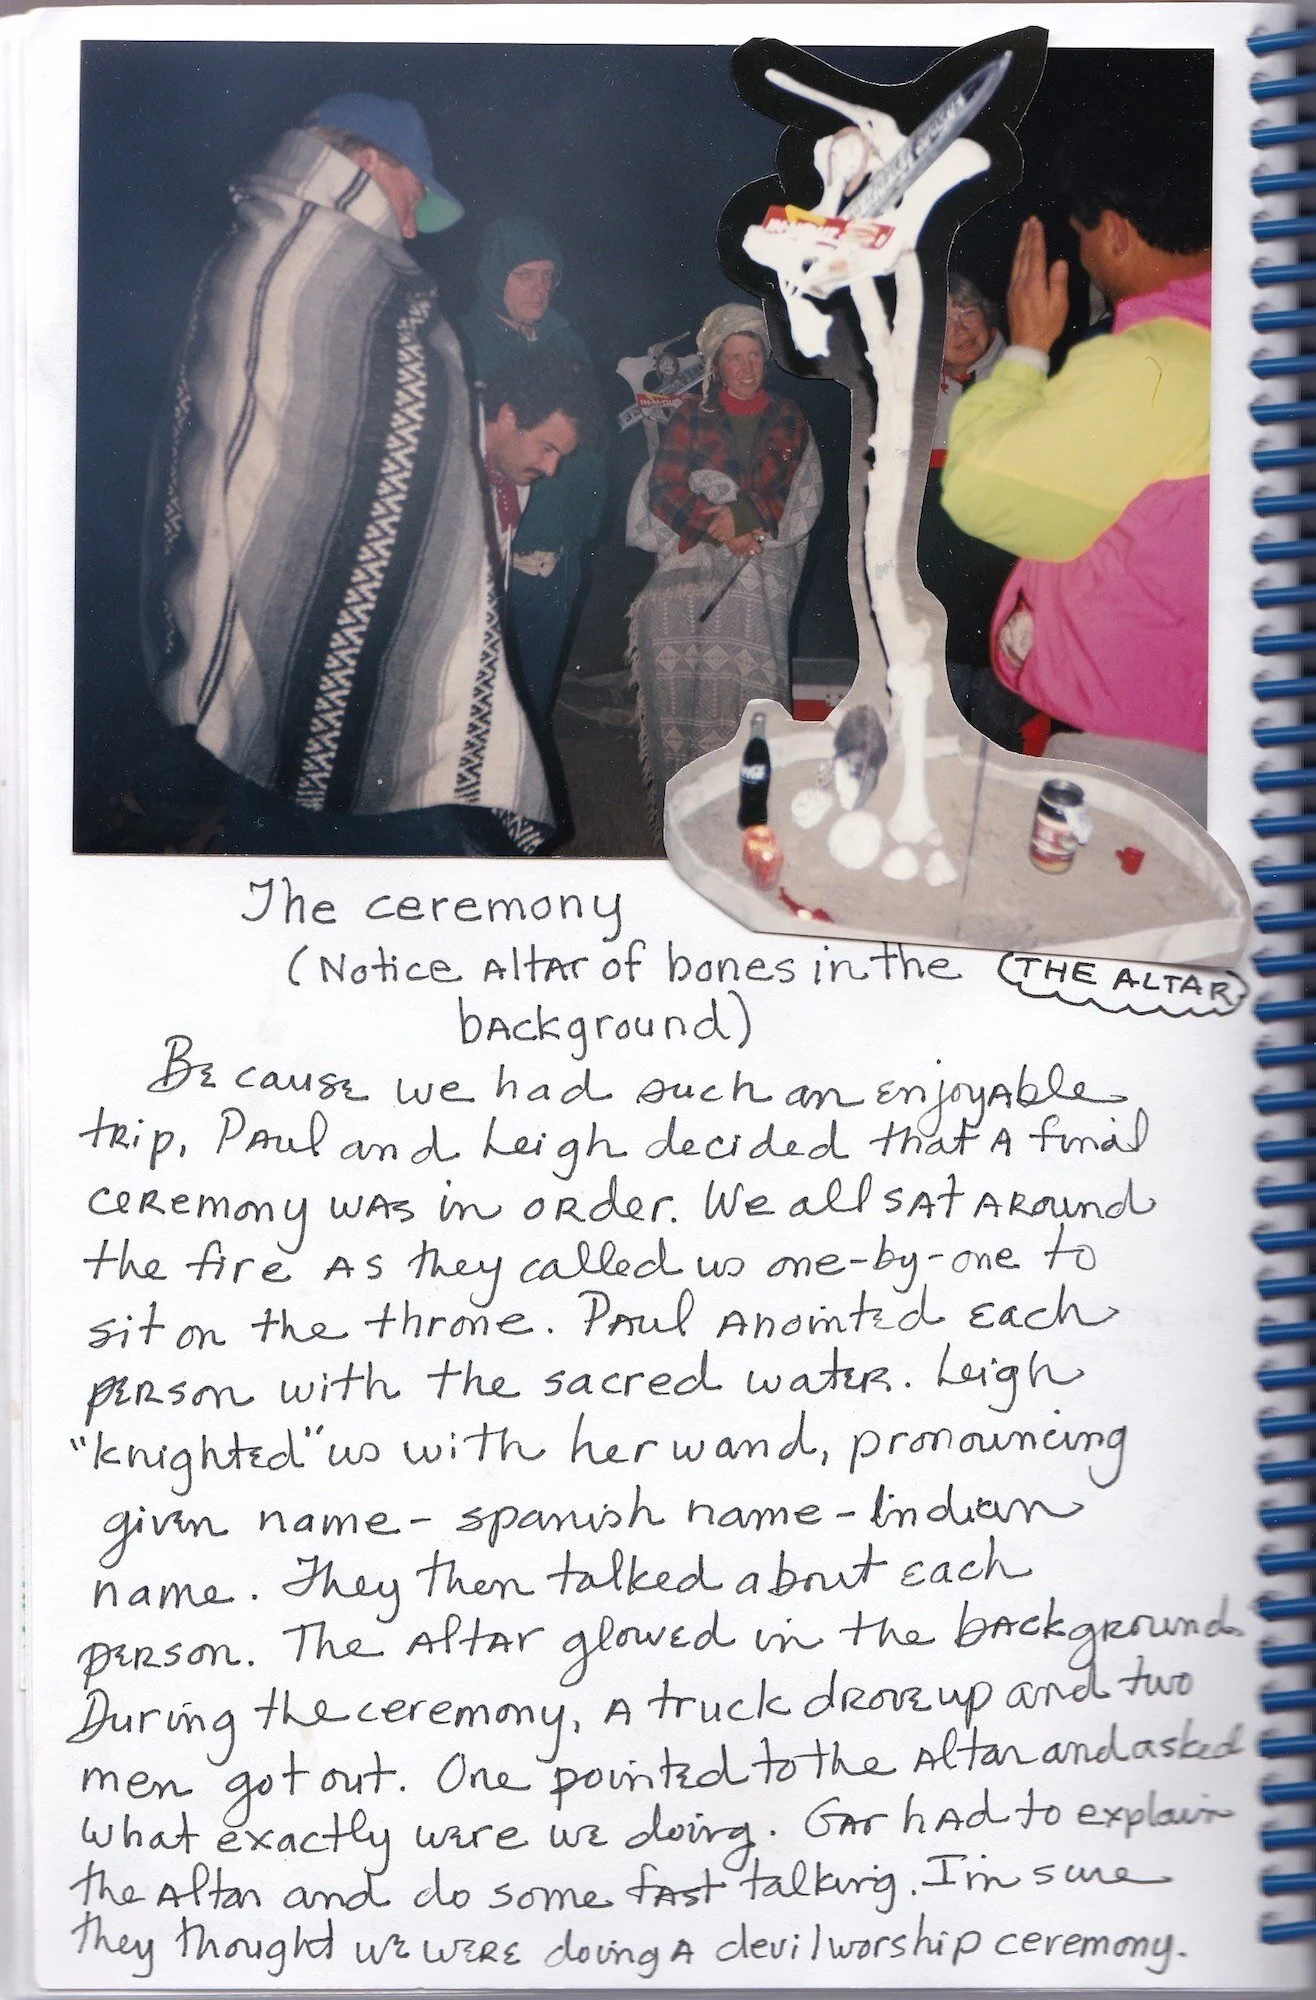 IN-N-OUT
The ceremony
(Notice Altar of bones in the
background)
(THE ALTAR)
Because we had such an enjoyable
trip, Paul and Leigh decided that a final
ceremony was in order. We all sat around
the fire as they called us one-by-one to
sit on the throne. Paul anointed each
person with the sacred water. Leigh
"knighted" us with her wand, pronouncing
given name - spanish name - Indian
name. They then talked about each
person. The Altar glowed in the background.
During the ceremony, a truck drove up and two
men got out. One pointed to the Altar and asked
what exactly were we doing. Gar had to explain
the Altar and do some fast talking. I'm sure
they thought we were doing a devil worship ceremony.